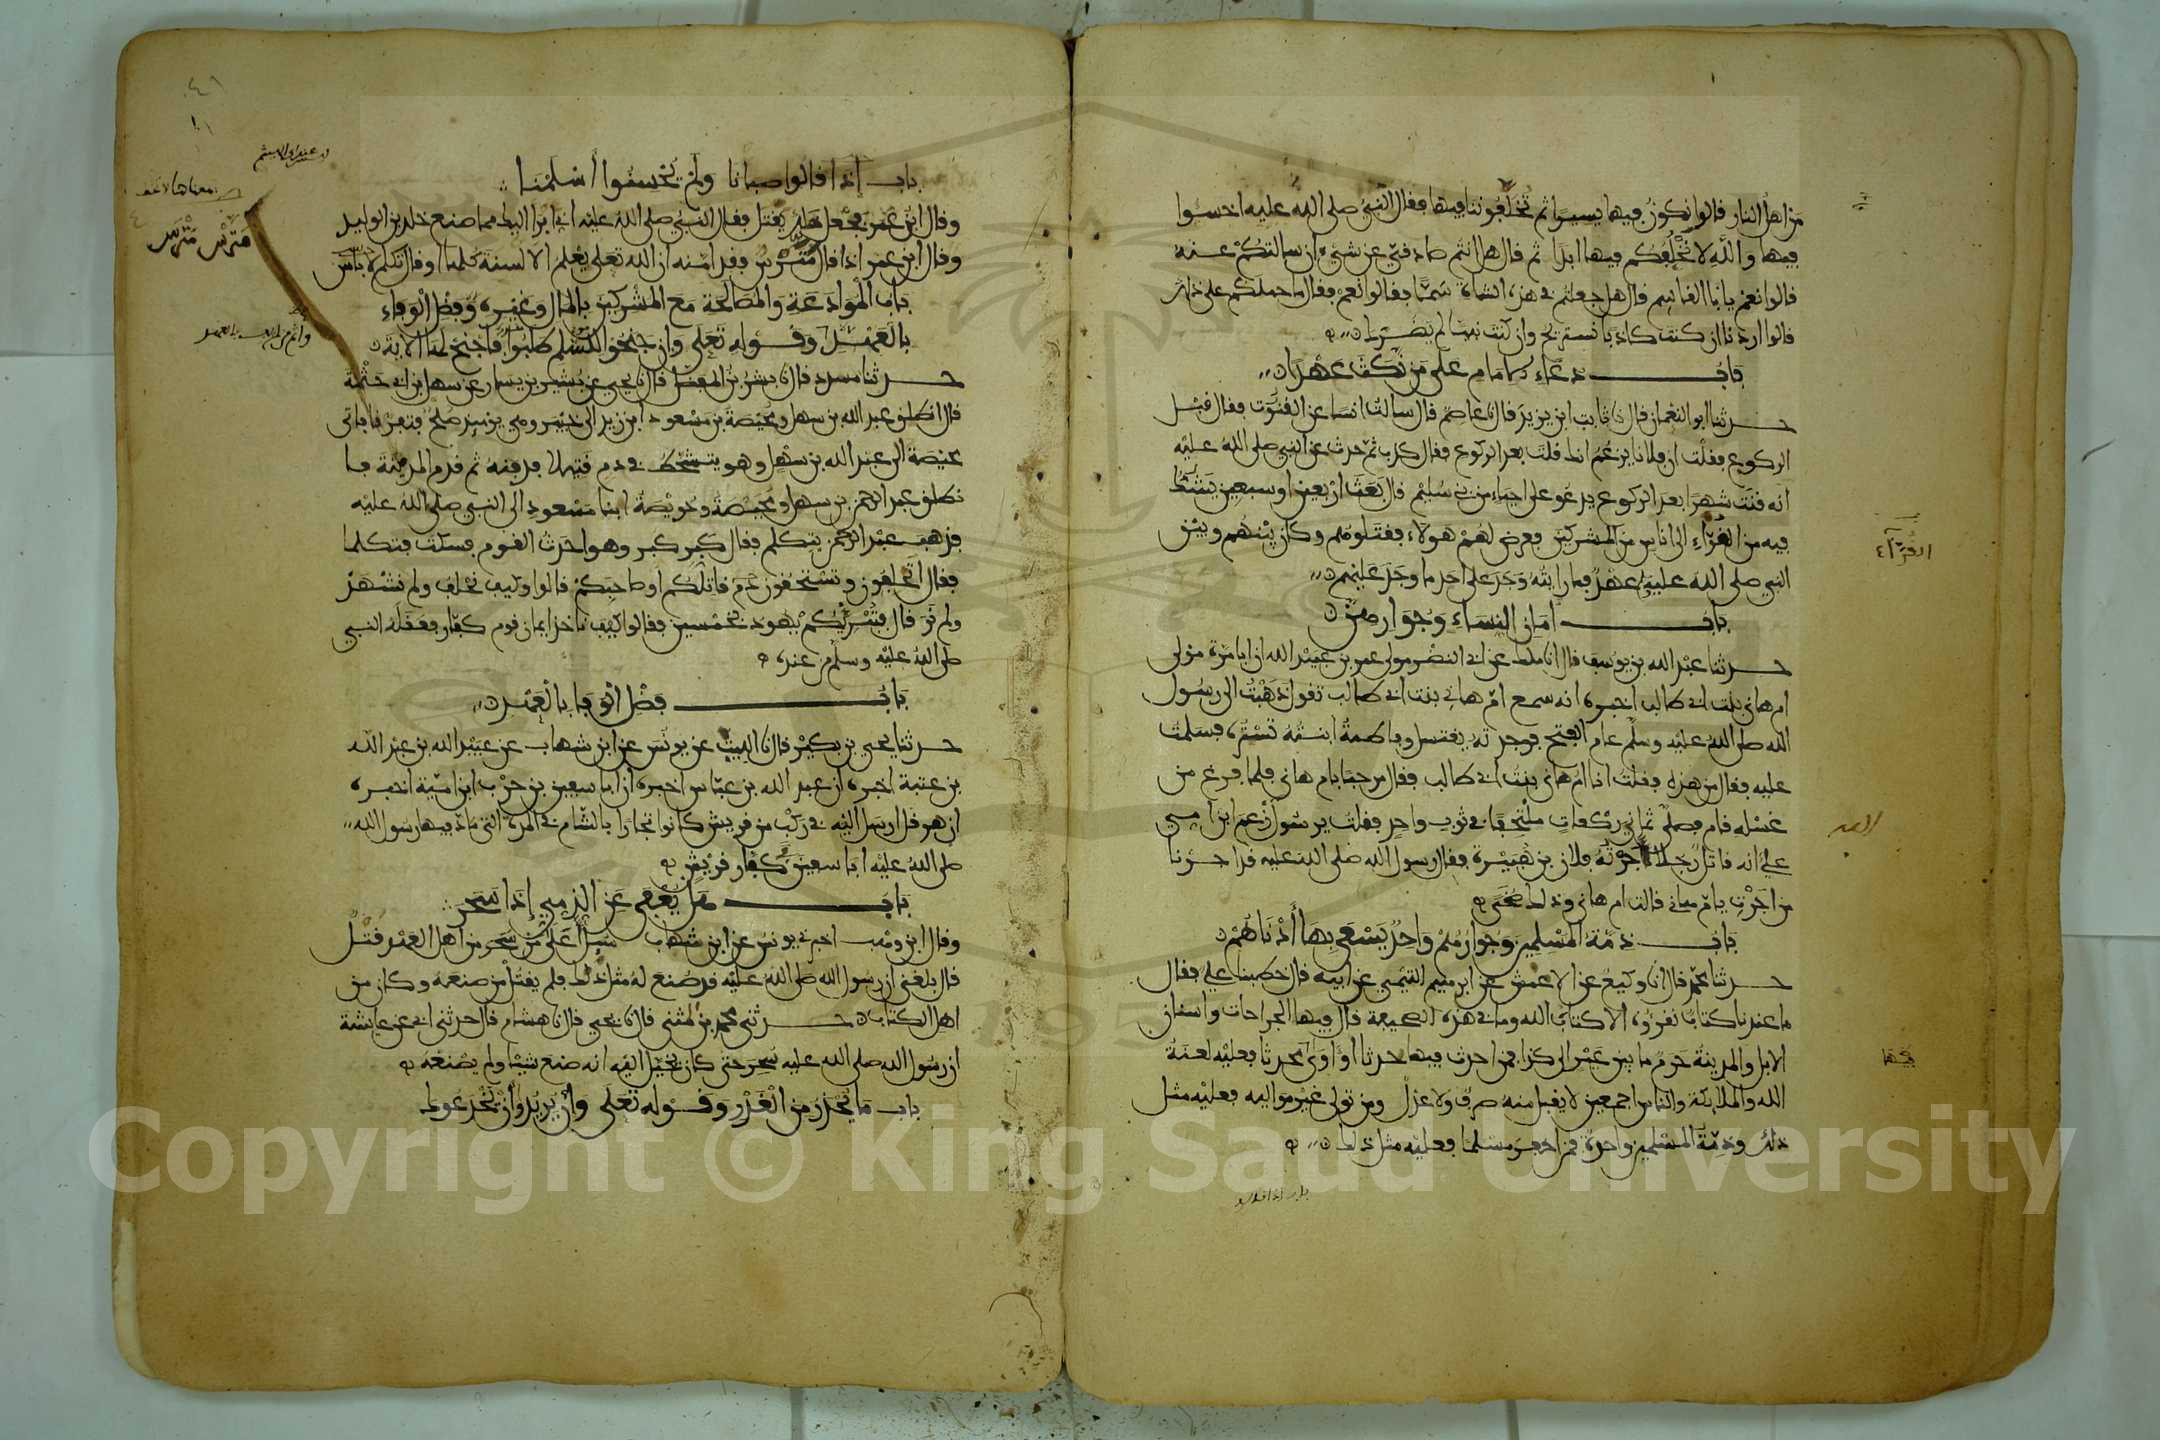 من اهل النار قالوا نكون فيها يسيرا ثم تخلفوننا فيها فقال النبي صلى الله عليه اخسئوا
فيها والله لا نخلفكم فيها ابدا ثم قال هل انتم صادقي عن شيء ان سالتكم عنه
قالوا نعم يابا القاسم قال هل جعلتم في هذه الشاة سما فقالوا نعم فقال ما حملكم على ذلك
قالوا اردنا ان كنت كاذبا نستريح وان كنت نبيا لم يضرك
باب دعاء الامام على من نكث عهدا
حدثنا ابو النعمان قال نا ثابت ابن يزيد قال نا عاصم قال سالت انسا عن القنوت فقال قبل
الركوع فقلت ان فلانا يزعم انك قلت بعد الركوع فقال كذب ثم حدث عن النبي صلى الله عليه
انه قنت شهرا بعد الركوع يدعو على احياء من بني سليم قال بعث اربعين او سبعين يشك
فيه من القراء الى اناس من المشركين فعرض لهم هولاء فقتلوهم وكان بينهم وبين
النبي صلى الله عليه عهد فما رايته وجد على احد ما وجد عليهم
باب امان النساء وجوارهن
حدثنا عبد الله بن يوسف قال انا ملك عن ابي النضر مولى عمر بن عبيد الله ان ابا مرة مولى
ام هاني بنت ابي طالب اخبره انه سمع ام هاني بنت ابي طالب تقول ذهبت الى رسول
الله صلى الله عليه وسلم عام الفتح فوجدته يغتسل وفاطمة ابنته تستره فسلمت
عليه فقال من هذه فقلت انا ام هاني بنت ابي طالب فقال مرحبا بام هاني فلما فرغ من
غسله قام فصلى ثماني ركعات ملتحفا في ثوب واحد فقلت يرسول زعم ابن امي
علي انه قاتل رجلا اجرته فلان بن هبيرة فقال رسول الله صلى الله عليه قد اجرنا
من اجرت يام هاني قالت ام هاني وذلك ضحى
باب ذمة المسلمين وجوارهم واحد يسعى بها ادناهم
حدثنا محمد قال انا وكيع عن الاعمش عن ابرهيم التيمي عن ابيه قال خطبنا علي فقال
ما عندنا كتاب نقرؤه الا كتاب الله وما في هذه الصحيفة قال فيها الجراحات واسنان
الابل والمدينة حرم ما بين عير الى كذا فمن احدث فيها حدثا او اوى محدثا فعليه لعنة
الله والملائكة والناس اجمعين لا يقبل منه صرف ولا عدل ومن تولى غير مواليه فعليه مثل
ذلك وذمة المسلمين واحدة فمن اخفر مسلما فعليه مثل ذلك
باب اذا قالوا
القرآء
باب اذا قالوا صبانا ولم يحسنوا اسلمنا
وقال ابن عمر فجعل خلد يقتل فقال النبي صلى الله عليه اني ابرا اليك مما صنع خلد بن الوليد
وقال ابن عمر اذا قال مترس فقد امنه ان الله تعلى يعلم الالسنة كلها وقال تكلم لا باس
باب الموادعة والمصالحة مع المشركين بالمال وغيره وفضل الوفاء
بالعهد وقوله تعلى وان جنحوا للسلم طلبوا فاجنح لها الاية
حدثنا مسدد قال نا بشر بن المفضل قال نا يحيى عن بشير بن يسار عن سهل بن ابي حثمة
قال انطلق عبد الله بن سهل ومحيصة بن مسعود ابن زيد الى خيبر وهي يومئذ صلح فتفرقا فاتى
محيصة الى عبد الله بن سهل وهو يتشحط في دم قتيلا فدفنه ثم قدم المدينة فا
نطلق عبد الرحمن بن سهل ومحيصة وحويصة ابنا مسعود الى النبي صلى الله عليه
فذهب عبد الرحمن يتكلم فقال كبر كبر وهو احدث القوم فسكت فتكلما
فقال اتحلفون وتستحقون دم قاتلكم او صاحبكم قالوا وكيف نحلف ولم نشهد
ولم نر قال فتبريكم يهود بخمسين فقالوا كيف ناخذ ايمان قوم كفار فعقله النبي
صلى الله عليه وسلم من عنده
باب فضل الوفا بالعهد
حدثنا يحيى بن بكير قال نا الليث عن يونس عن ابن شهاب عن عبيد الله بن عبد الله
بن عتبة اخبره ان عبد الله بن عباس اخبره ان ابا سفين بن حرب ابن امية اخبره
ان هرقل ارسل اليه في ركب من قريش كانوا تجارا بالشام في المدة التي ماد فيها رسول الله
صلى الله عليه ابا سفين في كفار قريش
باب هل يعفى عن الذمي اذا سحر
وقال ابن وهب اخبرني يونس عن ابن شهاب سئل اعلى من سحر من اهل العهد قتل
قال بلغني ان رسول الله صلى الله عليه قد صنع له مثل ذلك فلم يقتل من صنعه وكان من
اهل الكتاب حدثني محمد بن المثنى قال نا يحيى قال نا هشام قال حدثني ابي عن عايشة
ان رسول الله صلى الله عليه سحر حتى كان يخيل اليه انه صنع شيئا ولم يصنعه
باب ما يحذر من الغدر وقوله تعلى وان يريدوا ان يخدعوك
مترس مترس
Copyright © King Saud University